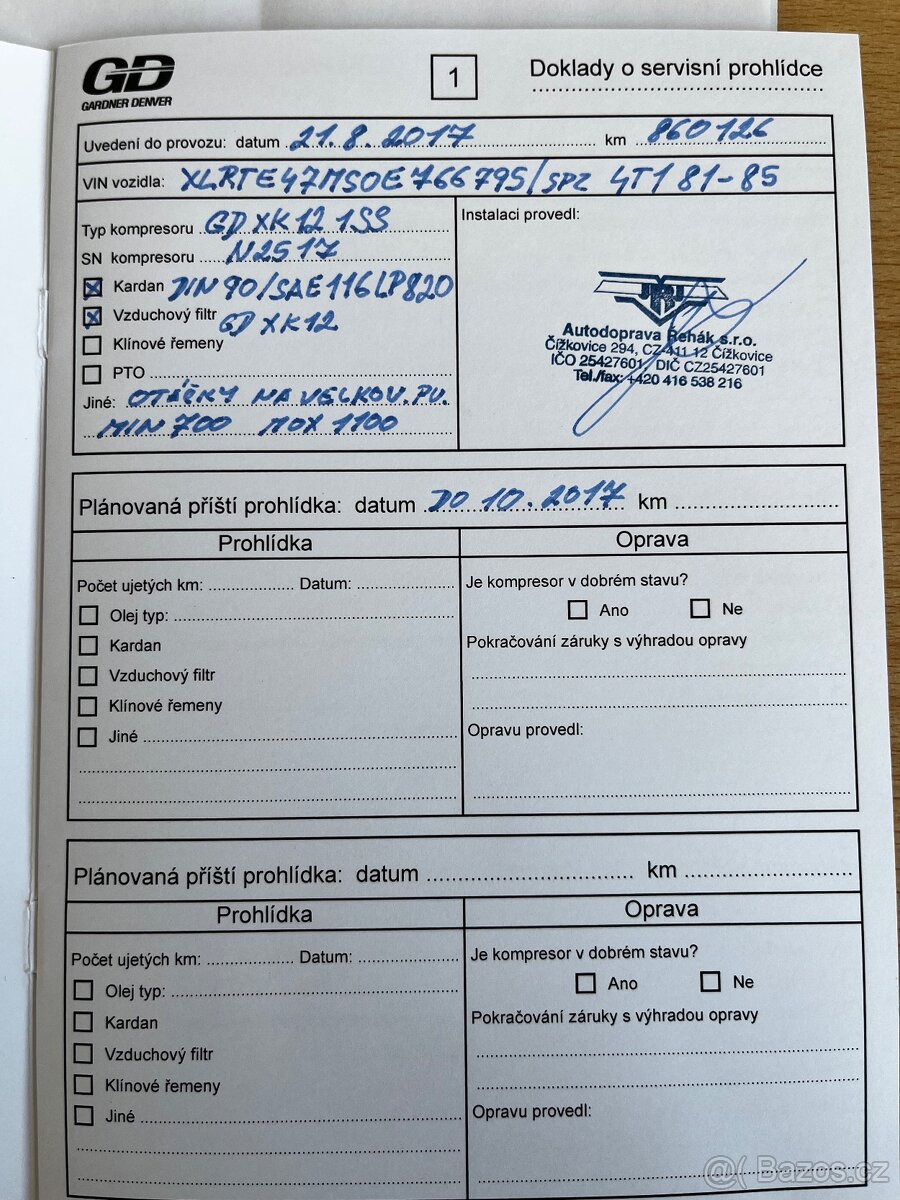 GD
GARDNER DENVER
1
Doklady o servisní prohlídce
Uvedení do provozu: datum 21.8.2017 km 860126
VIN vozidla: XLRTE47MSOE766795/SPZ 4T1 81-85
Typ kompresoru GD XK12 1SS
SN kompresoru N2517
Kardan DIN 90/SAE116LP820
Vzduchový filtr GD XK12
Klínové řemeny
PTO
Jiné: OTÁČKY NA VELKOV. PV.
MIN 700 MOX 1100
Instalaci provedl:
Autodoprava Řehák s.r.o.
Čížkovice 294, CZ-411 12 Čížkovice
IČO 25427601, DIČ CZ25427601
Tel./fax: +420 416 538 216
Plánovaná příští prohlídka: datum DO 10.2017 km
Prohlídka
Počet ujetých km: Datum:
Olej typ:
Kardan
Vzduchový filtr
Klínové řemeny
Jiné
Oprava
Je kompresor v dobrém stavu?
Ano Ne
Pokračování záruky s výhradou opravy
Opravu provedl:
Plánovaná příští prohlídka: datum km
Prohlídka
Počet ujetých km: Datum:
Olej typ:
Kardan
Vzduchový filtr
Klínové řemeny
Jiné
Oprava
Je kompresor v dobrém stavu?
Ano Ne
Pokračování záruky s výhradou opravy
Opravu provedl:
Bazos.cz